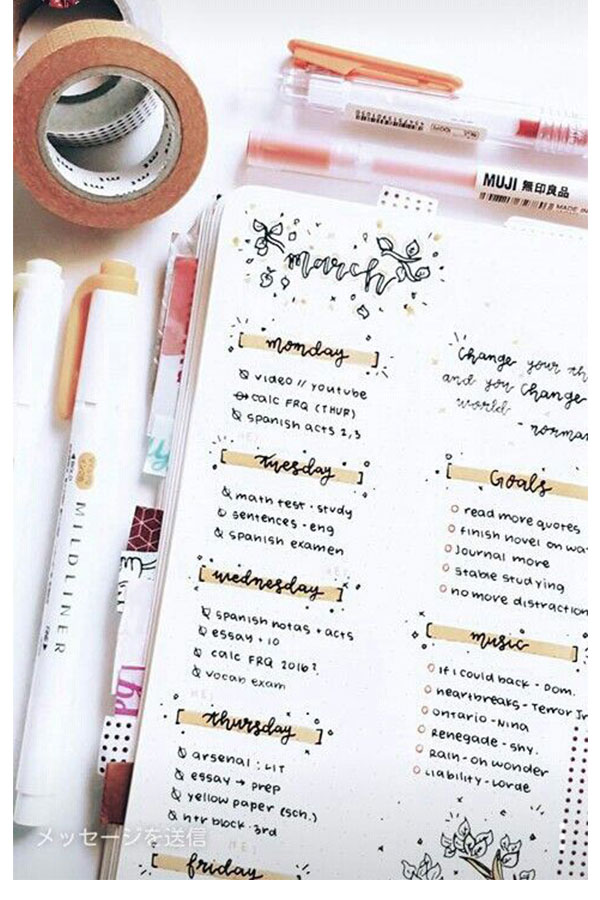 mt
MUJI 無印良品
MADE IN
MILDLINER
march
monday
video // youtube
calc FRQ (THUR)
spanish acts 2,3
tuesday
math test - study
sentences - eng
spanish examen
wednesday
spanish notas + acts
essay + 10
calc FRQ 2016?
vocab exam
thursday
arsenal : LIT
essay → prep
yellow paper (sch.)
htr block - 3rd
friday
change your
and you change
world
Goals
read more quotes
finish novel on
Journal more
stable studying
no more distraction
music
if i could back - Dom.
heartbreaks - Terror Jr
ontario - Nina
Renegade - shy.
Rain - on wonder
Liability - Lorde
メッセージを送信